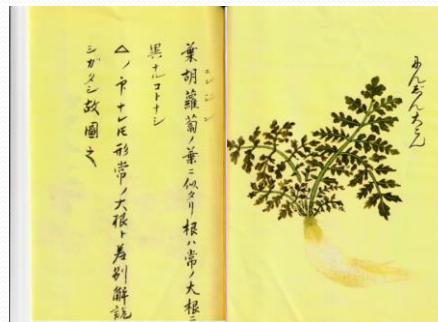 にんじん大こん
葉胡蘿蔔ノ葉ニ似タリ根ハ常ノ大根ニ
ニンジン
異ナルコトナシ
△ノ下ナレ𪜈形常ノ大根ト差別解説
シガタシ故圖之